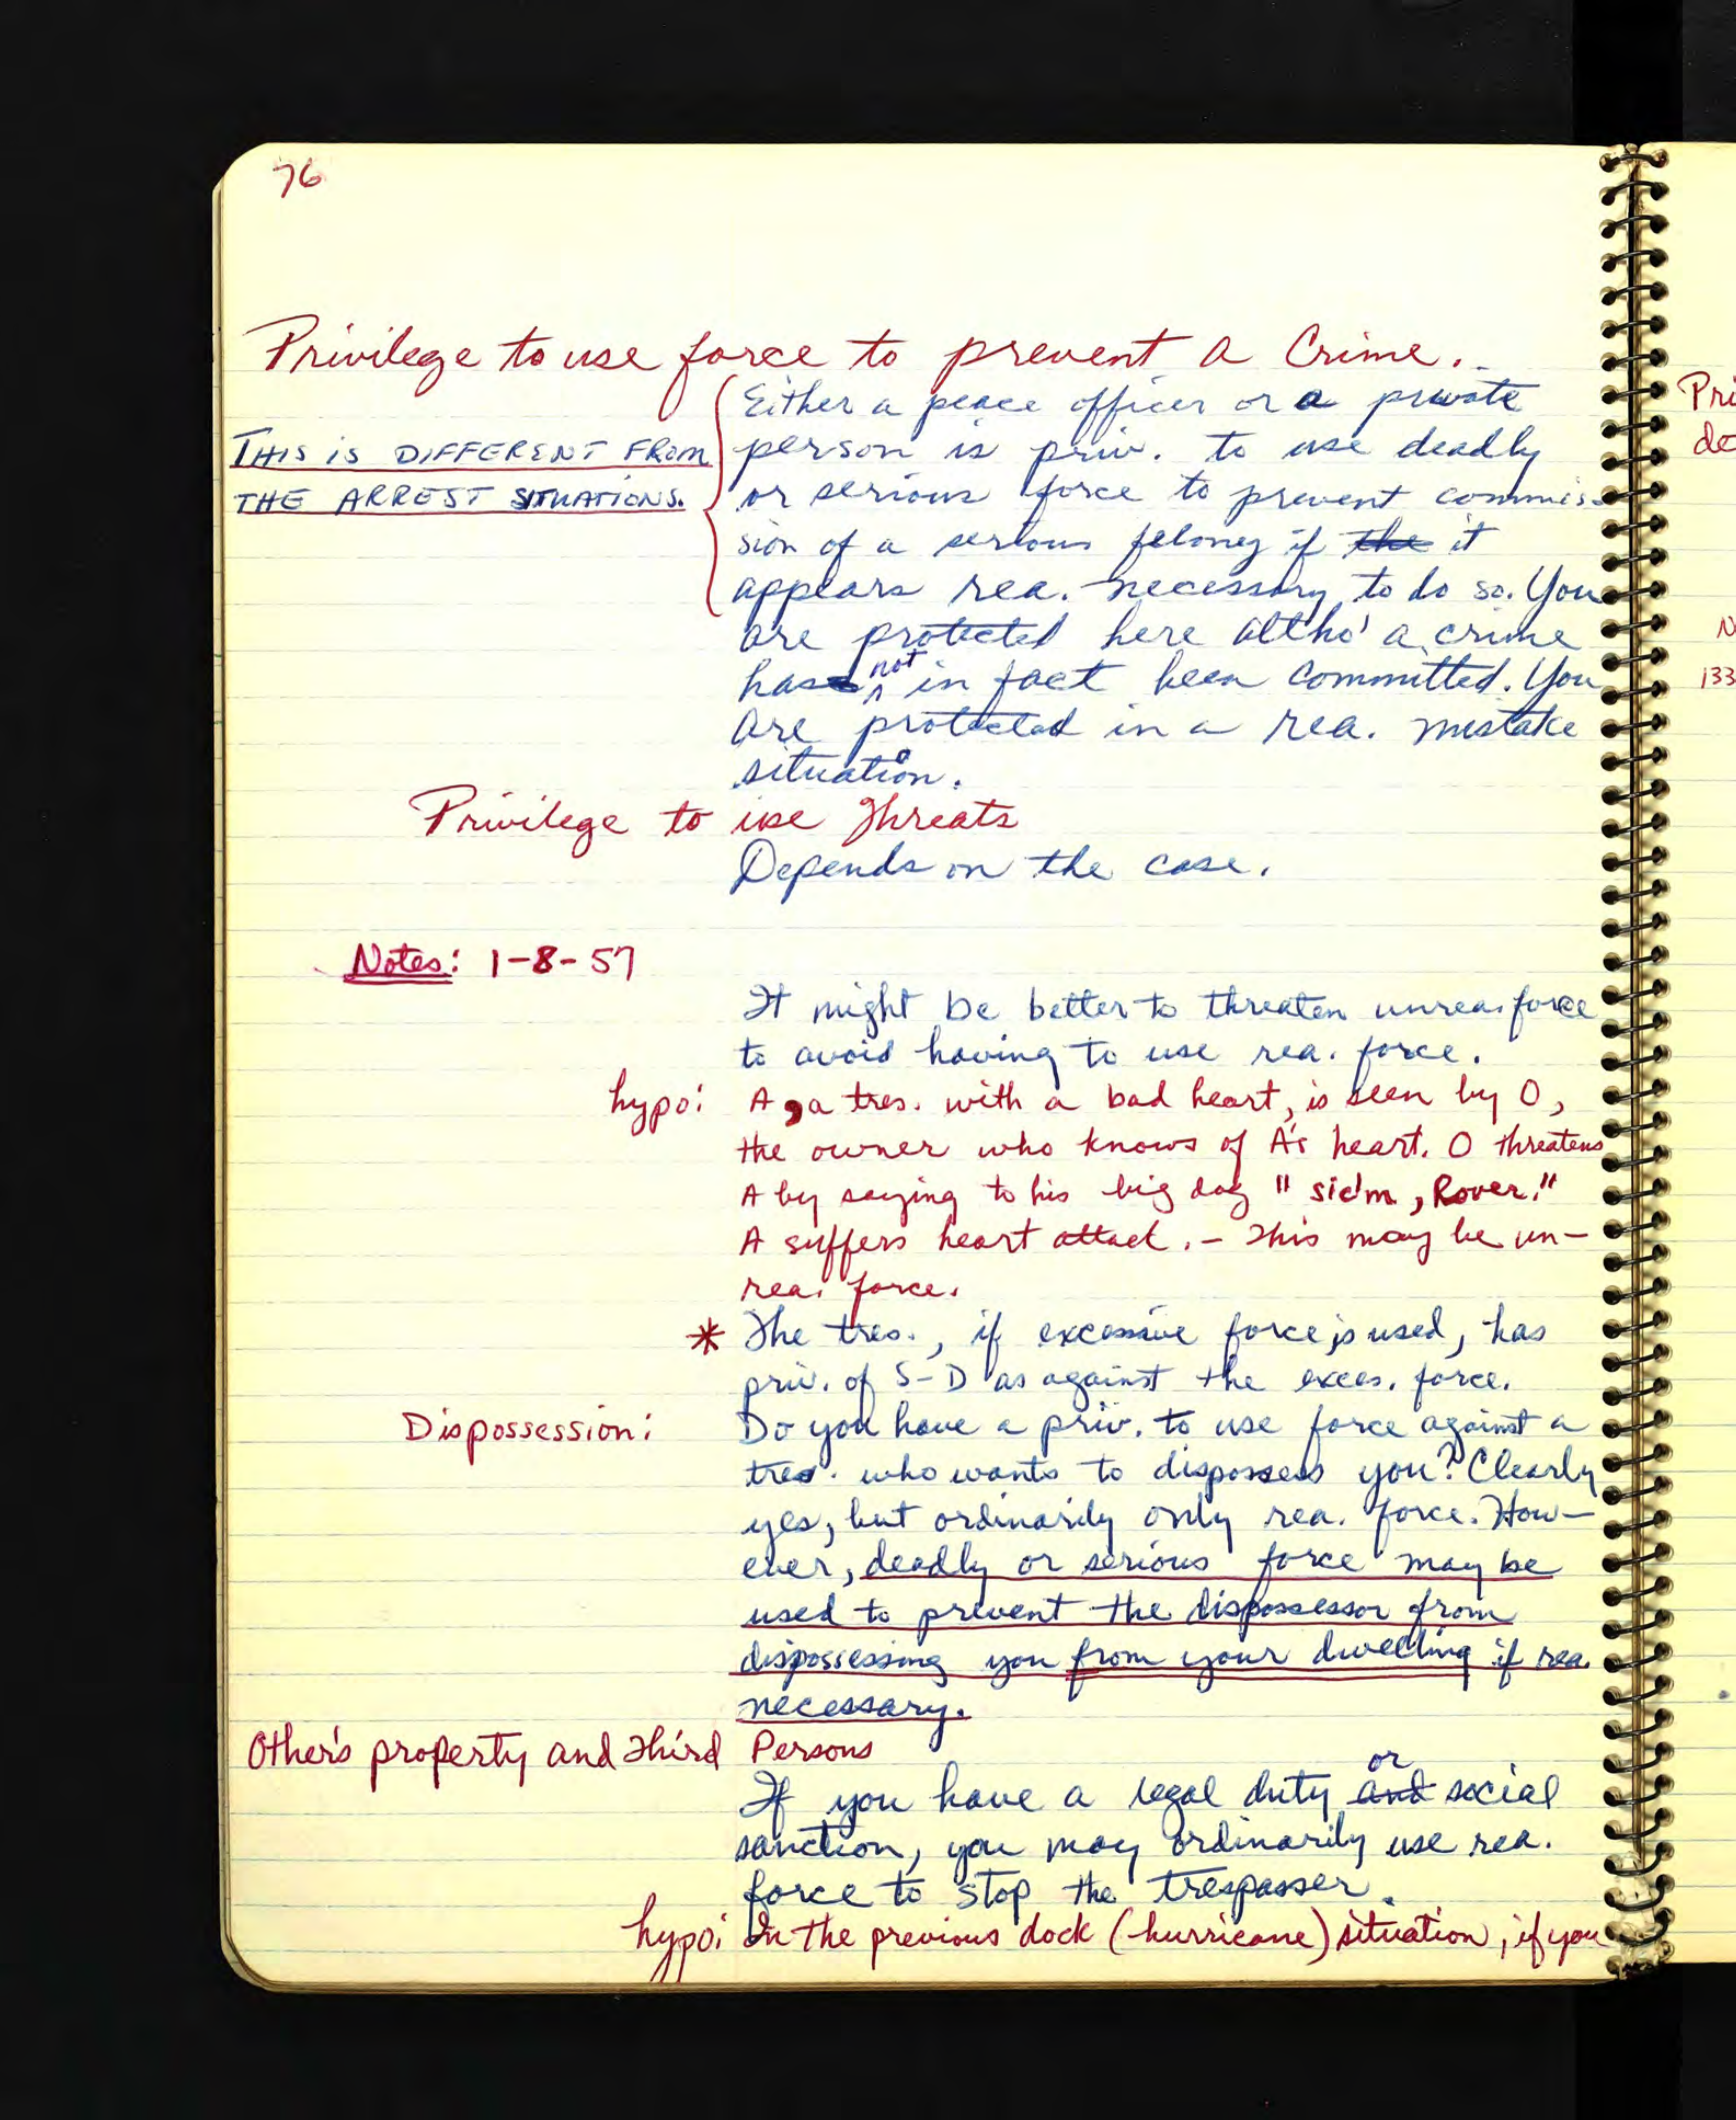 76
Privilege to use force to prevent a Crime.
Either a peace officer or a private
THIS IS DIFFERENT FROM person is priv. to use deadly
THE ARREST SITUATIONS. or serious force to prevent commis-
sion of a serious felony if the it
appears rea. necessary to do so. You
are protected here altho' a crime
has not in fact been committed. You
are protected in a rea. mistake
situation.
Privilege to use Threats
Depends on the case.
Notes: 1-8-57
It might be better to threaten unrea. force
to avoid having to use rea. force.
hypo: A, a tres. with a bad heart, is seen by O,
the owner who knows of A's heart. O threatens
A by saying to his big dog "sic'm, Rover."
A suffers heart attack. - This may be un-
rea. force.
* The tres., if excessive force is used, has
priv. of S-D as against the exces. force.
Dispossession: Do you have a priv. to use force against a
tres. who wants to dispossess you? Clearly
yes, but ordinarily only rea. force. How-
ever, deadly or serious force may be
used to prevent the dispossessor from
dispossessing you from your dwelling if rea.
necessary.
Other's property and Third Persons
If you have a legal duty and or social
sanction, you may ordinarily use rea.
force to stop the trespasser.
hypo: In the previous dock (hurricane) situation, if you
Pri
de
N
133